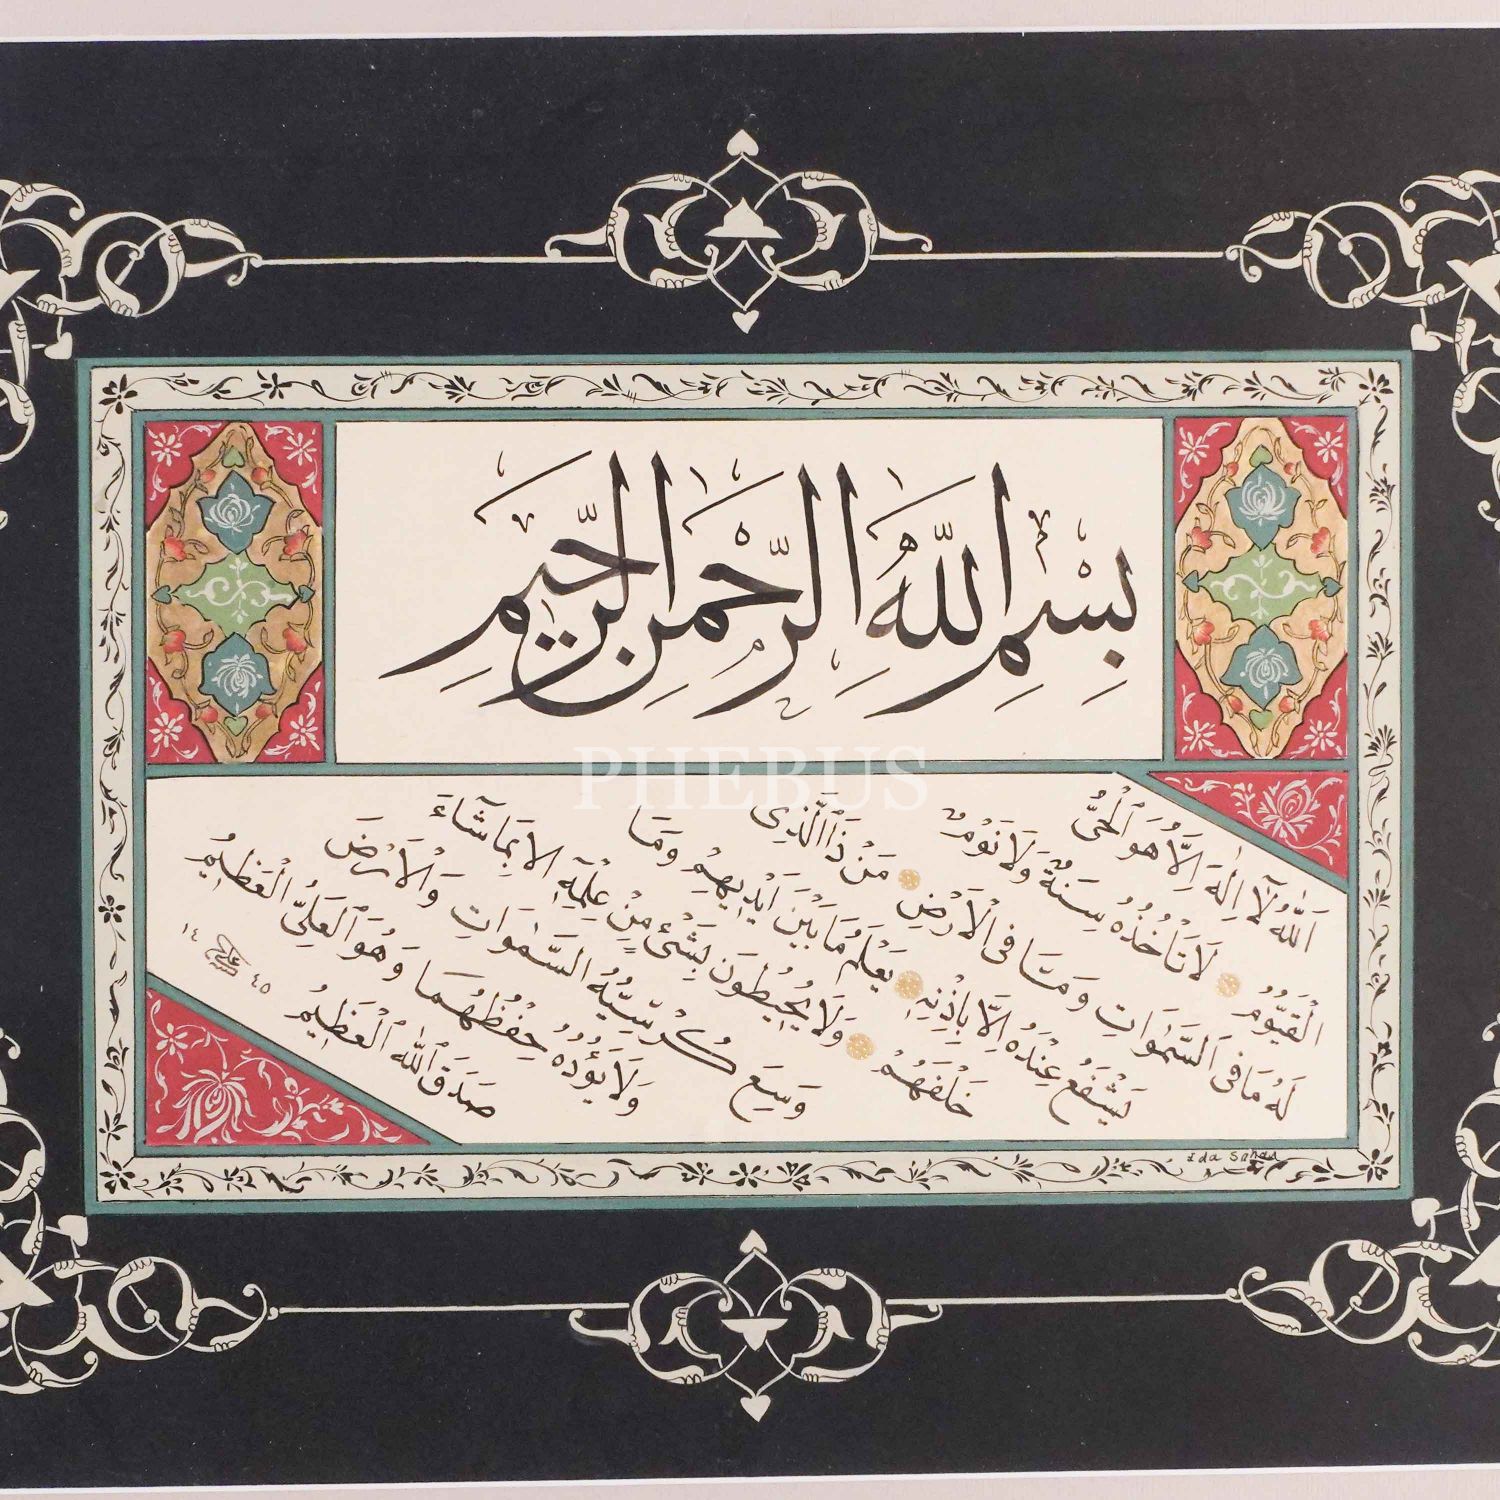 بِسْمِ اللّٰهِ الرَّحْمٰنِ الرَّحِيمِ
PHEBUS
اَللّٰهُ لَٓا اِلٰهَ اِلَّا هُوَ الْحَيُّ
الْقَيُّومُ لَا تَأْخُذُهُ سِنَةٌ وَلَا نَوْمٌ
لَهُ مَا فِى السَّمٰوَاتِ وَمَا فِى الْاَرْضِ مَنْ ذَا الَّذِى
يَشْفَعُ عِنْدَهُ اِلَّا بِاِذْنِهِ يَعْلَمُ مَا بَيْنَ اَيْدِيهِمْ وَمَا
خَلْفَهُمْ وَلَا يُحِيطُونَ بِشَىْءٍ مِنْ عِلْمِهِ اِلَّا بِمَا شَٓاءَ
وَسِعَ كُرْسِيُّهُ السَّمٰوَاتِ وَالْاَرْضَ
وَلَا يَؤُدُهُ حِفْظُهُمَا وَهُوَ الْعَلِىُّ الْعَظِيمُ
صَدَقَ اللّٰهُ الْعَظِيمُ
٤٥ ١٤